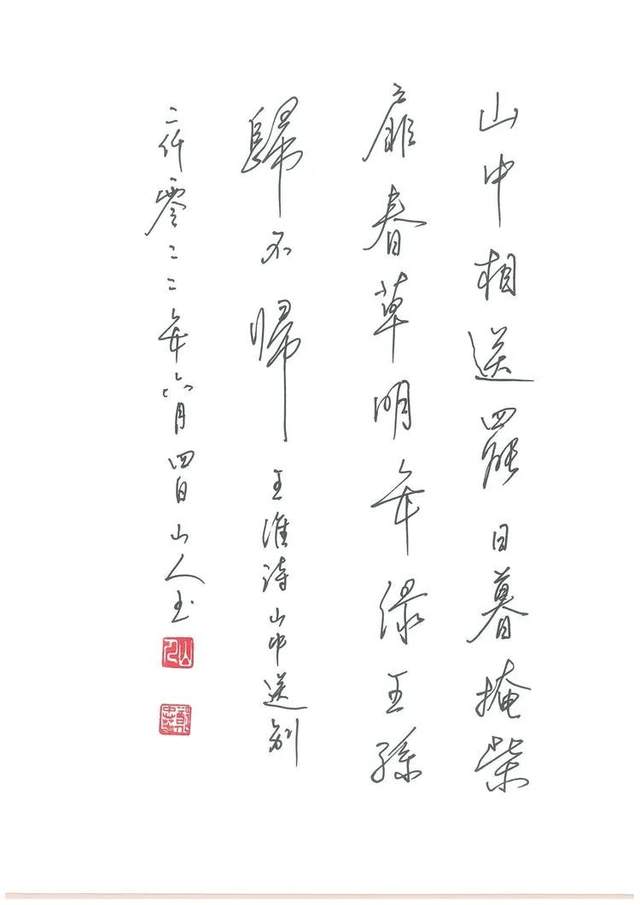 山中相送罷日暮掩柴
扉春草明年綠王孫
歸不歸王維詩山中送别
二仟零二二年六月四日山人书
山人